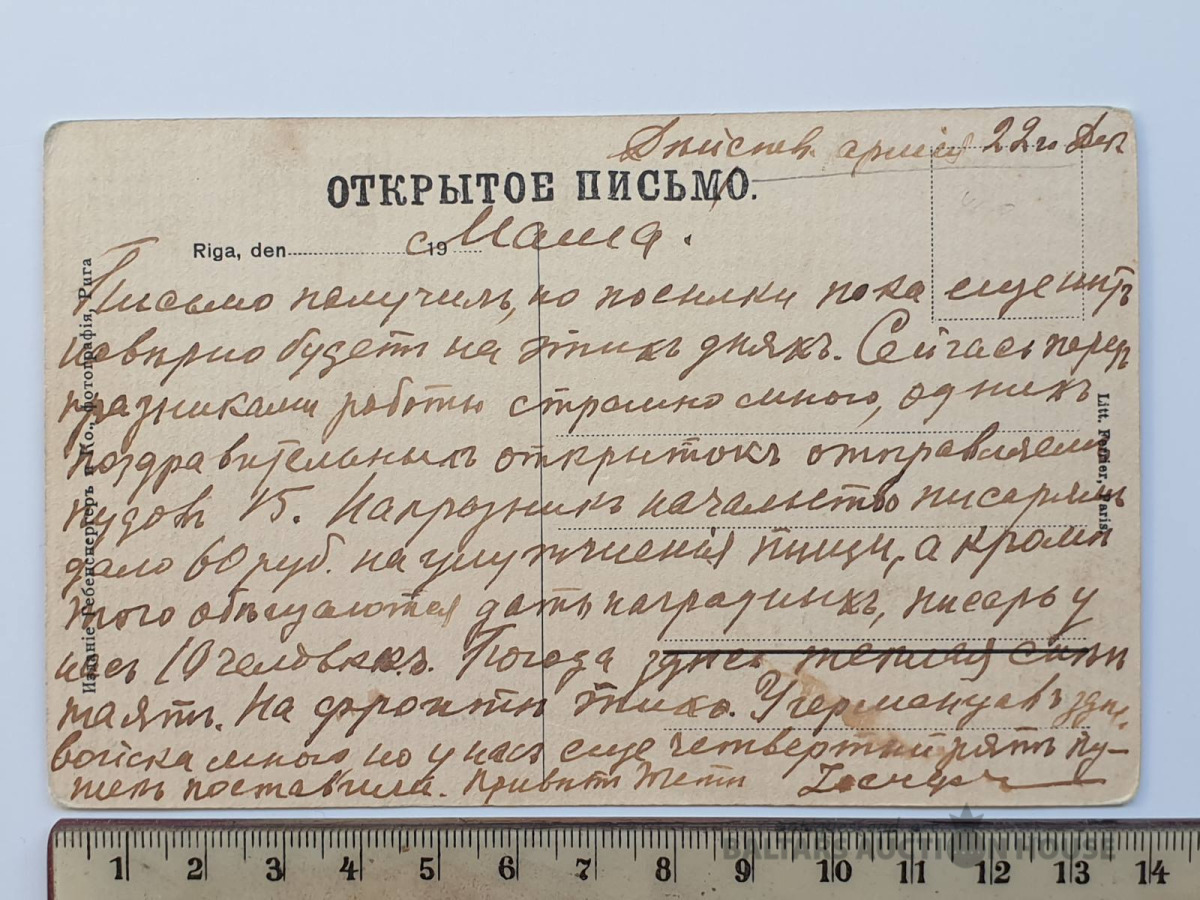 Действ. армія 22го Дек
ОТКРЫТОЕ ПИСЬМО.
Riga, den 19
Маша.
Письмо получилъ, но посылки пока еще нѣтъ
навѣрно будетъ на этихъ дняхъ. Сейчасъ перед
празниками работы страшно много, однихъ
поздравительныхъ открытокъ отправляемъ
пудовъ 15. На празникъ начальство писарямъ
дало 60 руб. на улутчшенія пищи, а кромѣ
того обѣщаются дать наградныхъ, писарь у
насъ 10 человѣкъ. Погода здѣсь теплая снѣгъ
таятъ. На фронтѣ тихо. У германцавъ здѣс.
войска много но у насъ еще четвертый рятъ пу-
шекъ поставили. Привѣтъ Тетѣ
Изданіе Гебенспергеръ и Ко., фотографія, Рига
Litt. Fernier, Paris
1 2 3 4 5 6 7 8 9 10 11 12 13 14
BALTARS AUCTION HOUSE